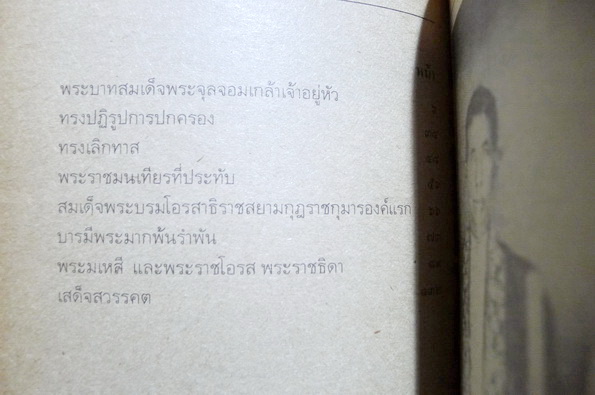 หน้า
พระบาทสมเด็จพระจุลจอมเกล้าเจ้าอยู่หัว
ทรงปฏิรูปการปกครอง
ทรงเลิกทาส
พระราชมนเทียรที่ประทับ
สมเด็จพระบรมโอรสาธิราชสยามกุฎราชกุมารองค์แรก
บารมีพระมากพ้นรำพัน
พระมเหสี และพระราชโอรส พระราชธิดา
เสด็จสวรรคต